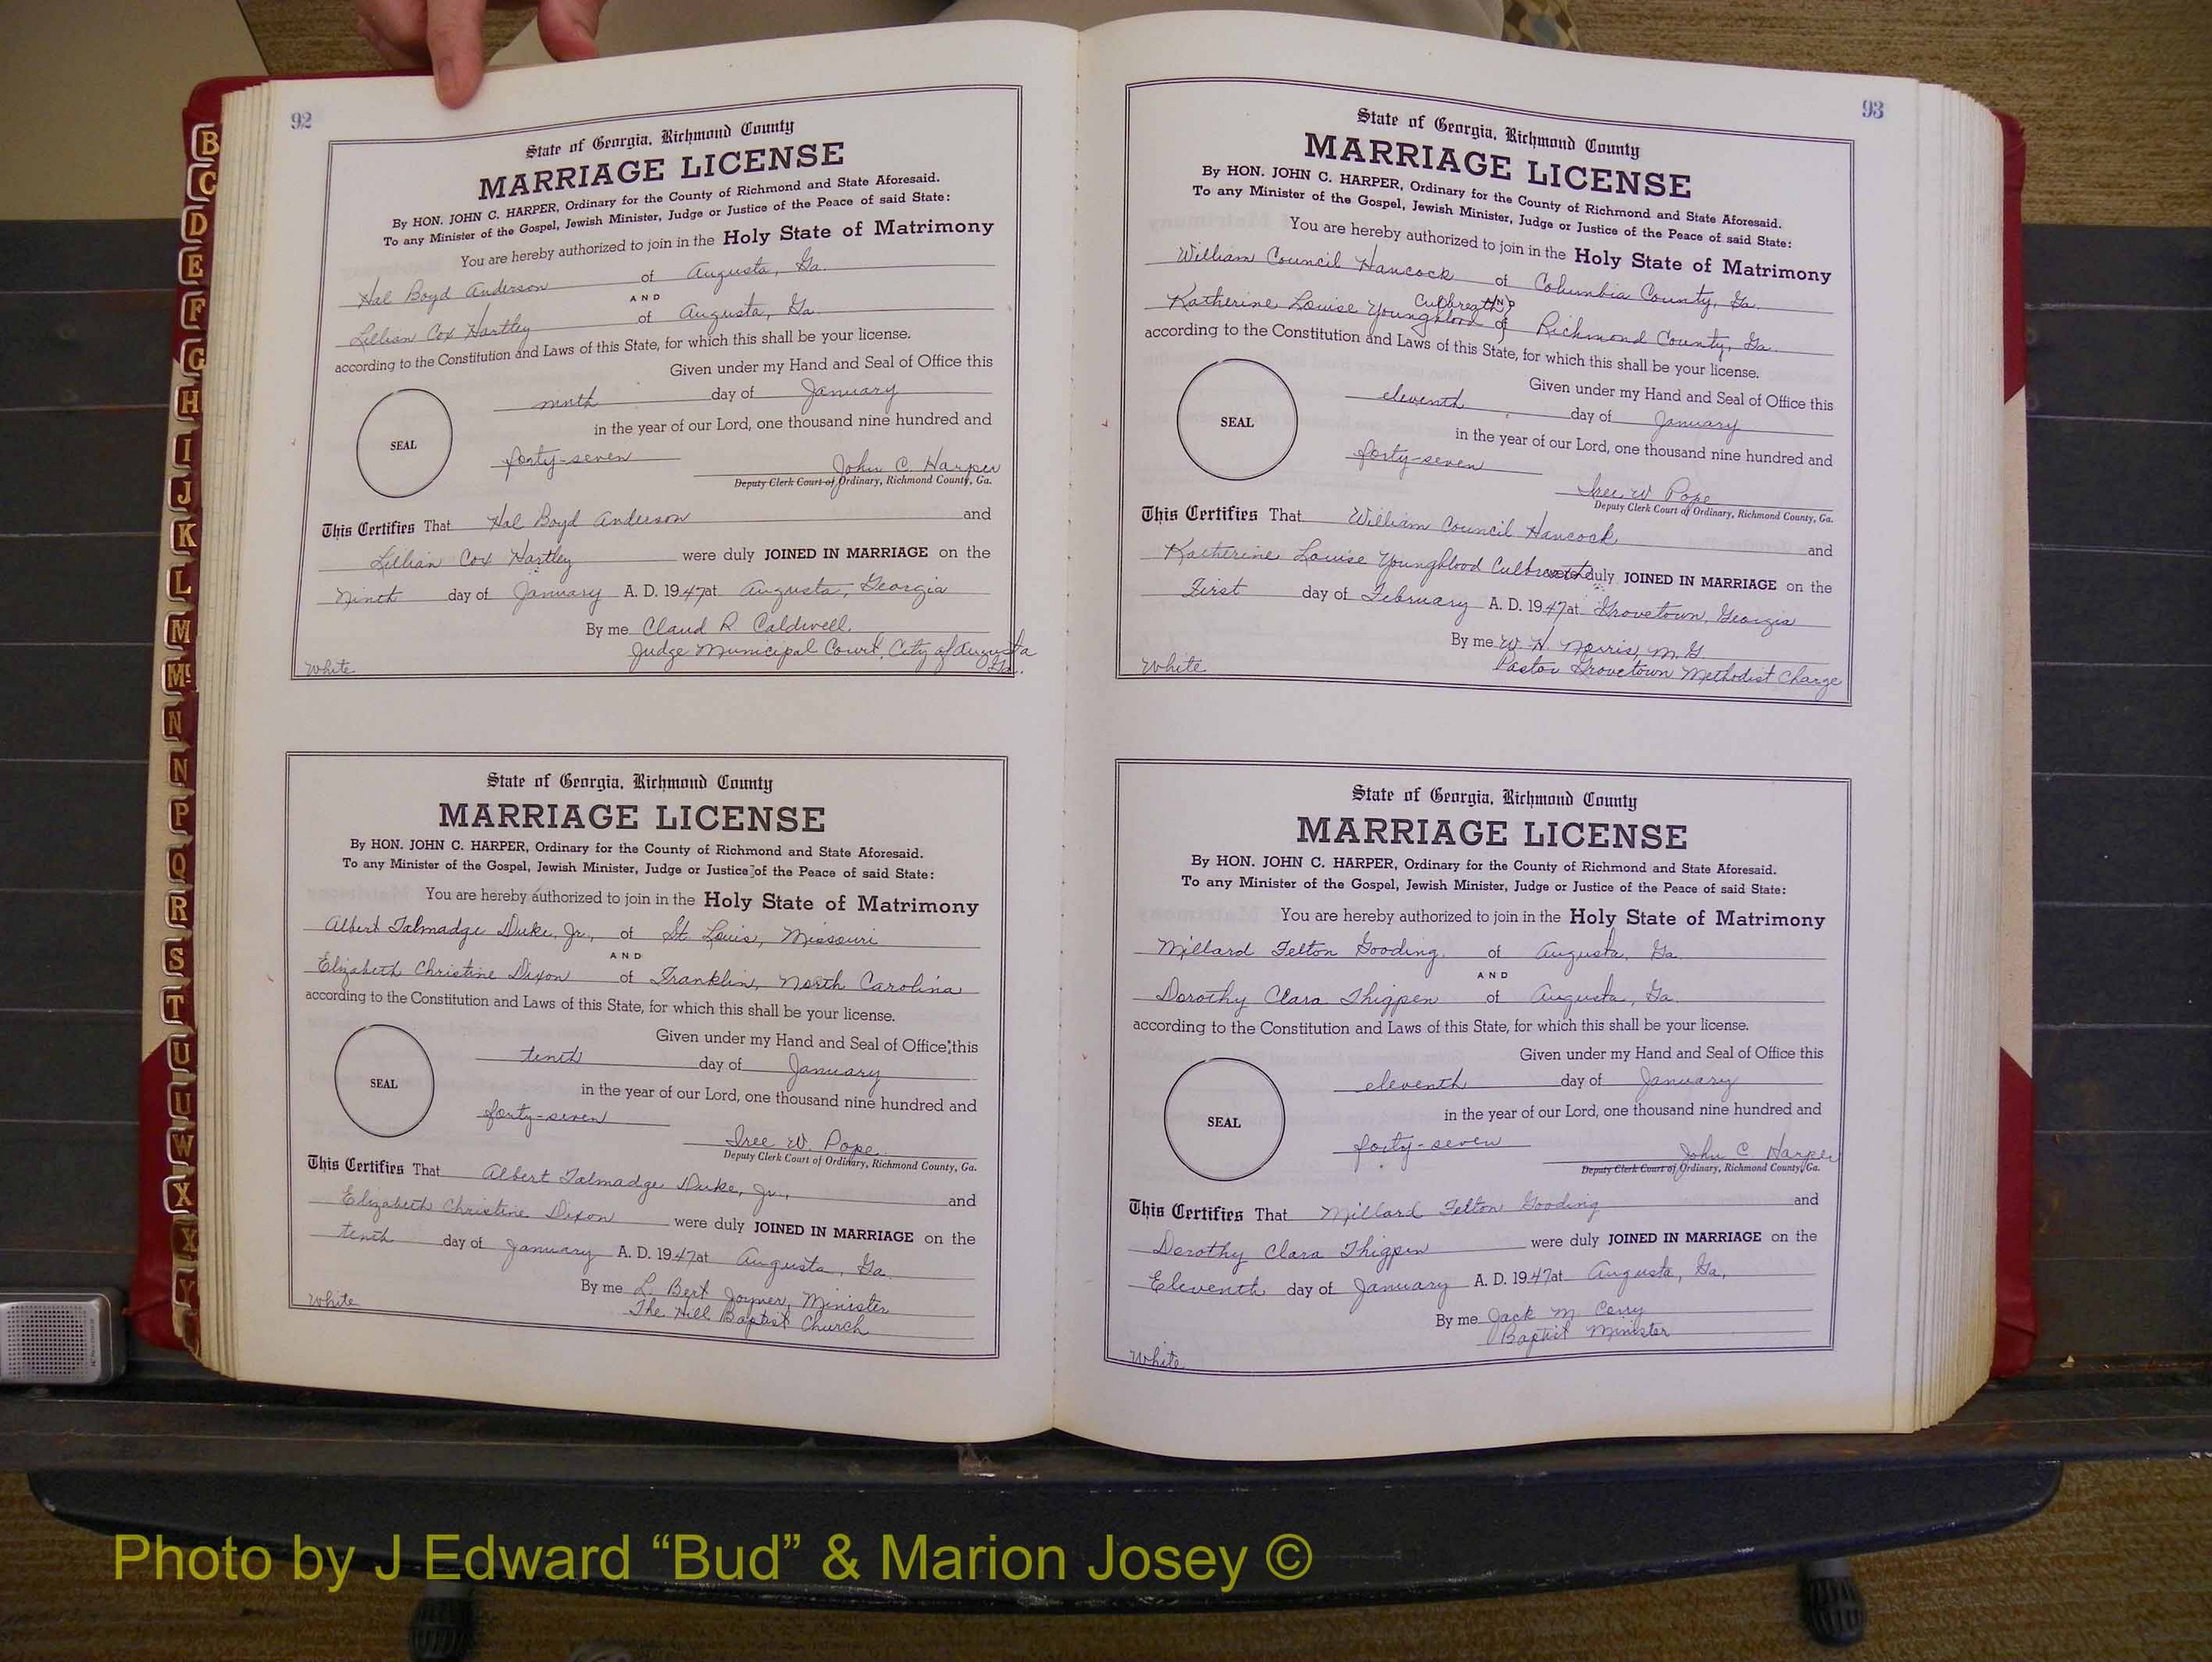 B
C
D
E
F
G
H
I
J
K
L
M
Mc
N
N
P
Q
R
S
T
U
U
W
X
X
Y
92
State of Georgia, Richmond County
MARRIAGE LICENSE
By HON. JOHN C. HARPER, Ordinary for the County of Richmond and State Aforesaid.
To any Minister of the Gospel, Jewish Minister, Judge or Justice of the Peace of said State:
You are hereby authorized to join in the Holy State of Matrimony
Hal Boyd Anderson of Augusta, Ga.
AND
Lillian Cox Hartley of Augusta, Ga.
according to the Constitution and Laws of this State, for which this shall be your license.
Given under my Hand and Seal of Office this
ninth day of January
in the year of our Lord, one thousand nine hundred and
SEAL
forty-seven
John C. Harper
Deputy Clerk Court of Ordinary, Richmond County, Ga.
This Certifies That Hal Boyd Anderson and
Lillian Cox Hartley were duly JOINED IN MARRIAGE on the
Ninth day of January A. D. 1947 at Augusta, Georgia
By me Claud R. Caldwell.
Judge Municipal Court, City of Augusta
Ga.
White
State of Georgia, Richmond County
MARRIAGE LICENSE
By HON. JOHN C. HARPER, Ordinary for the County of Richmond and State Aforesaid.
To any Minister of the Gospel, Jewish Minister, Judge or Justice of the Peace of said State:
You are hereby authorized to join in the Holy State of Matrimony
Albert Talmadge Duke, Jr., of St Louis, Missouri
AND
Elizabeth Christine Dixon of Franklin, North Carolina
according to the Constitution and Laws of this State, for which this shall be your license.
Given under my Hand and Seal of Office this
tenth day of January
in the year of our Lord, one thousand nine hundred and
SEAL
forty-seven
Iree W. Pope
Deputy Clerk Court of Ordinary, Richmond County, Ga.
This Certifies That Albert Talmadge Duke, Jr., and
Elizabeth Christine Dixon were duly JOINED IN MARRIAGE on the
tenth day of January A. D. 1947 at Augusta, Ga.
By me L. Bert Joyner, Minister
The Hill Baptist Church
White
93
State of Georgia, Richmond County
MARRIAGE LICENSE
By HON. JOHN C. HARPER, Ordinary for the County of Richmond and State Aforesaid.
To any Minister of the Gospel, Jewish Minister, Judge or Justice of the Peace of said State:
You are hereby authorized to join in the Holy State of Matrimony
William Council Hancock of Columbia County, Ga.
Culbreath AND
Katherine Louise Youngblood of Richmond County, Ga.
according to the Constitution and Laws of this State, for which this shall be your license.
Given under my Hand and Seal of Office this
eleventh day of January
in the year of our Lord, one thousand nine hundred and
SEAL
forty-seven
Iree W Pope
Deputy Clerk Court of Ordinary, Richmond County, Ga.
This Certifies That William Council Hancock and
Katherine Louise Youngblood Culbreath were duly JOINED IN MARRIAGE on the
First day of February A. D. 1947 at Grovetown, Georgia
By me W. H. Norris, M. G.
Pastor Grovetown Methodist Charge
White
State of Georgia, Richmond County
MARRIAGE LICENSE
By HON. JOHN C. HARPER, Ordinary for the County of Richmond and State Aforesaid.
To any Minister of the Gospel, Jewish Minister, Judge or Justice of the Peace of said State:
You are hereby authorized to join in the Holy State of Matrimony
Millard Felton Gooding of Augusta, Ga.
AND
Dorothy Clara Thigpen of Augusta, Ga.
according to the Constitution and Laws of this State, for which this shall be your license.
Given under my Hand and Seal of Office this
eleventh day of January
in the year of our Lord, one thousand nine hundred and
SEAL
forty-seven
John C. Harper
Deputy Clerk Court of Ordinary, Richmond County, Ga.
This Certifies That Millard Felton Gooding and
Dorothy Clara Thigpen were duly JOINED IN MARRIAGE on the
Eleventh day of January A. D. 1947 at Augusta, Ga,
By me Jack M.
Baptist Minister
White
Photo by J Edward “Bud” & Marion Josey ©